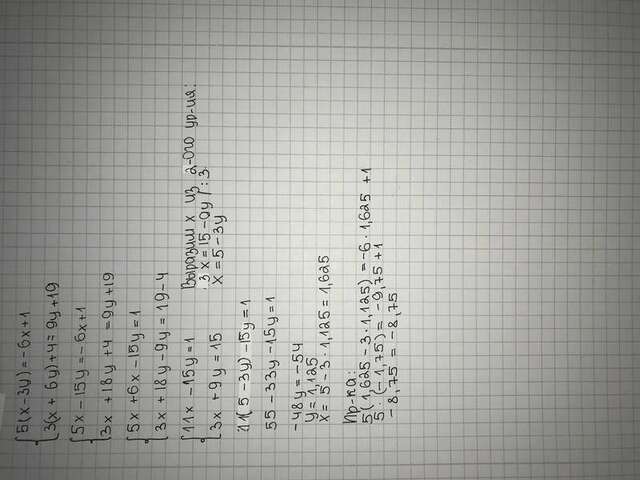 5(x-3y)=-6x+1
3(x + 6y)+4=9y+19
5x-15y=-6x+1
3x +18y+4 =9y+19
5x+6x-15y=1
3x+18y-9y=19-4
11x-15y=1 Выразим x из 2-ого ур-ия:
3x+9y=15 3x=15-9y |:3
x=5-3y
11(5-3y)-15y=1
55-33y-15y=1
-48y=-54
y=1,125
x= 5-3·1,125=1,625
Пр-ка:
5(1,625-3·1,125)=-6·1,625 +1
5·(-1,75)= -9,75+1
-8,75 = -8,75